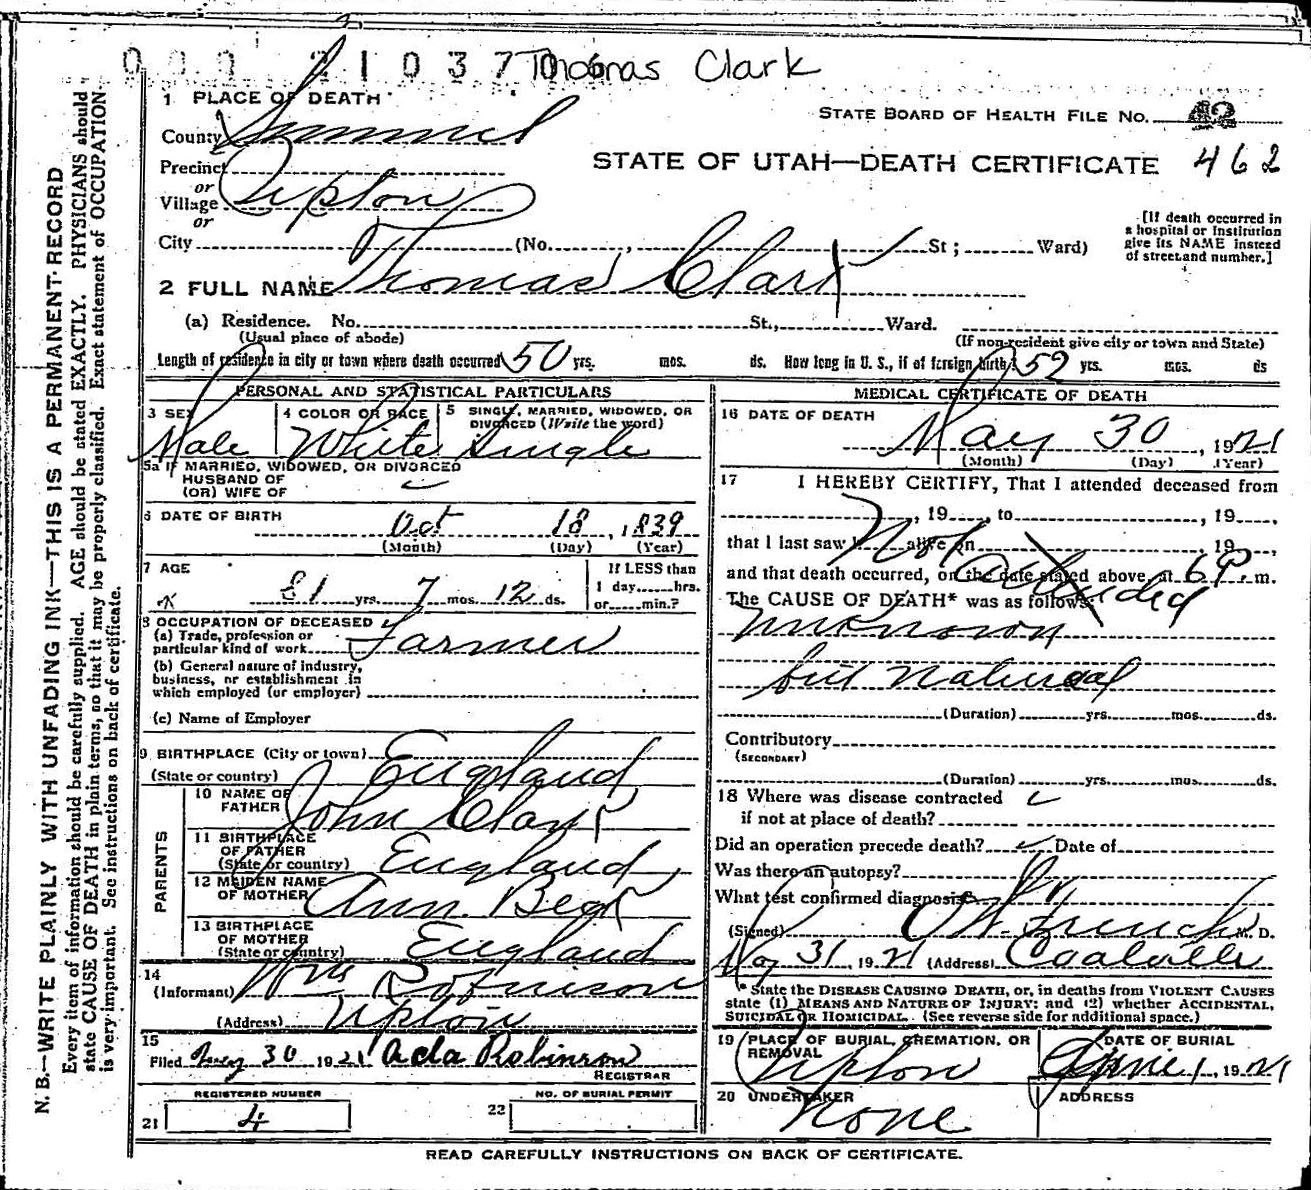 0 0 0 2 1 0 3 7 0 6 Thomas Clark
1 PLACE OF DEATH
STATE BOARD OF HEALTH FILE NO. 42
County Summit
STATE OF UTAH—DEATH CERTIFICATE 462
Precinct
or
Village Upton
or
City (No. , St ; Ward)
[If death occurred in
a hospital or institution
give its NAME instead
of street and number.]
2 FULL NAME Thomas Clark
(a) Residence. No. St., Ward.
(Usual place of abode) (If non-resident give city or town and State)
Length of residence in city or town where death occurred 50 yrs. mos. ds. How long in U. S., if of foreign birth? 52 yrs. mos. ds
PERSONAL AND STATISTICAL PARTICULARS
3 SEX 4 COLOR OR RACE 5 SINGLE, MARRIED, WIDOWED, OR
DIVORCED (Write the word)
Male White Single
5a IF MARRIED, WIDOWED, OR DIVORCED
HUSBAND OF
(OR) WIFE OF
6 DATE OF BIRTH
Oct 18, 1839
(Month) (Day) (Year)
7 AGE If LESS than
1 day......hrs.
81 yrs. 7 mos. 12 ds. or......min.?
8 OCCUPATION OF DECEASED
(a) Trade, profession or
particular kind of work Farmer
(b) General nature of industry,
business, or establishment in
which employed (or employer)
(c) Name of Employer
9 BIRTHPLACE (City or town)
(State or country) England
10 NAME OF
FATHER John Clark
11 BIRTHPLACE
OF FATHER
(State or country) England
12 MAIDEN NAME
OF MOTHER Ann
13 BIRTHPLACE
OF MOTHER
(State or country) England
PARENTS
14
(Informant) Wm Robinson
(Address) Upton
15
Filed May 30 1921 Ada Robinson
REGISTRAR
REGISTERED NUMBER NO. OF BURIAL PERMIT
21 4 22
MEDICAL CERTIFICATE OF DEATH
16 DATE OF DEATH
May 30, 1921
(Month) (Day) (Year)
17 I HEREBY CERTIFY, That I attended deceased from
, 19 , to , 19 ,
that I last saw h alive on 19 ,
Not attended
and that death occurred, on the date stated above, at 6 P. m.
The CAUSE OF DEATH* was as follows:
Unknown
but Natural
(Duration) yrs. mos. ds.
Contributory
(SECONDARY)
(Duration) yrs. mos. ds.
18 Where was disease contracted
if not at place of death?
Did an operation precede death? Date of
Was there an autopsy?
What test confirmed diagnosis
(Signed) French M. D.
May 31, 1921 (Address) Coalville
* State the DISEASE CAUSING DEATH, or, in deaths from VIOLENT CAUSES
state (1) MEANS AND NATURE OF INJURY; and (2) whether ACCIDENTAL,
SUICIDAL OR HOMICIDAL. (See reverse side for additional space.)
19 PLACE OF BURIAL, CREMATION, OR
REMOVAL
DATE OF BURIAL
Upton June 1, 1921
20 UNDERTAKER ADDRESS
None
READ CAREFULLY INSTRUCTIONS ON BACK OF CERTIFICATE.
N. B.—WRITE PLAINLY WITH UNFADING INK—THIS IS A PERMANENT RECORD
Every item of information should be carefully supplied. AGE should be stated EXACTLY. PHYSICIANS should
state CAUSE OF DEATH in plain terms, so that it may be properly classified. Exact statement of OCCUPATION
is very important. See instructions on back of certificate.